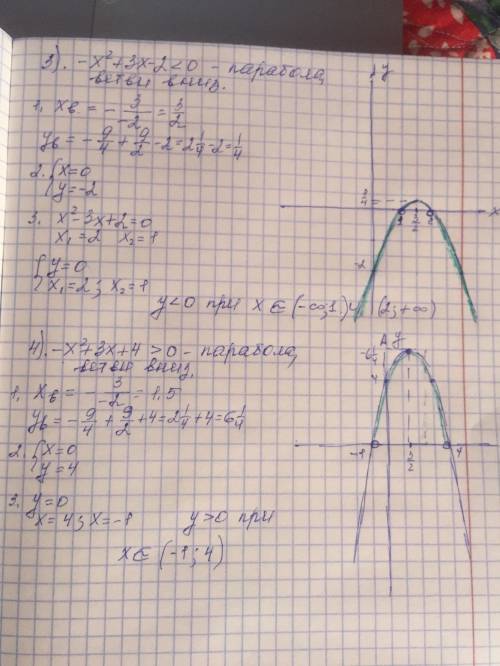 3). -x²+3x-2<0 - парабола,
ветви вниз.
1, xв. = - 3/-2 = 3/2
yв = - 9/4 + 9/2 - 2 = 2 1/4 - 2 = 1/4
2. { x=0
y=-2
3. x²-3x+2=0
x₁=2 x₂=1
{ y=0
x₁=2; x₂=1
y<0 при x ∈ (-∞;1)∪(2;+∞)
y
x
1 3/2 2
-2
4). -x²+3x+4>0 - парабола,
ветви вниз,
1, xв = - 3/-2 = 1,5
yв = - 9/4 + 9/2 + 4 = 2 1/4 + 4 = 6 1/4
2. { x=0
y=4
3. y=0
x=4; x=-1
y>0 при
x ∈ (-1; 4)
y
4
-1 3/2 4